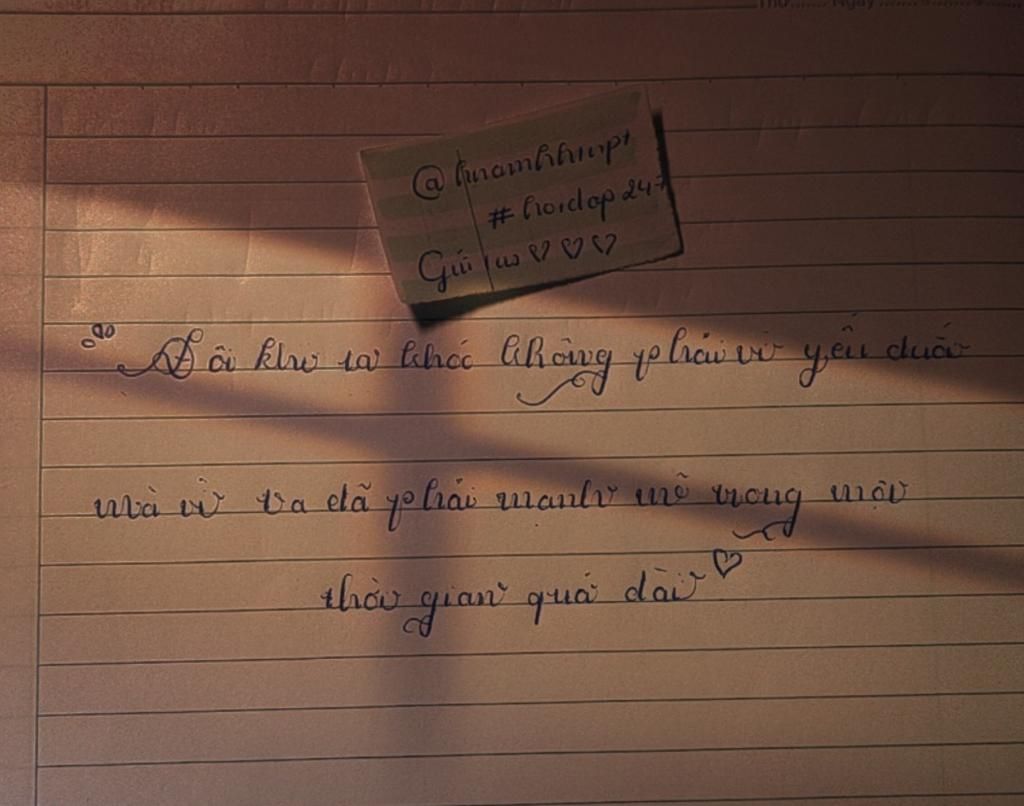 Thứ....... Ngày
#hoidap247
Gửi
Đôi khi ta khóc không phải vì yếu đuối
mà vì ta đã phải mạnh mẽ trong một
thời gian quá dài